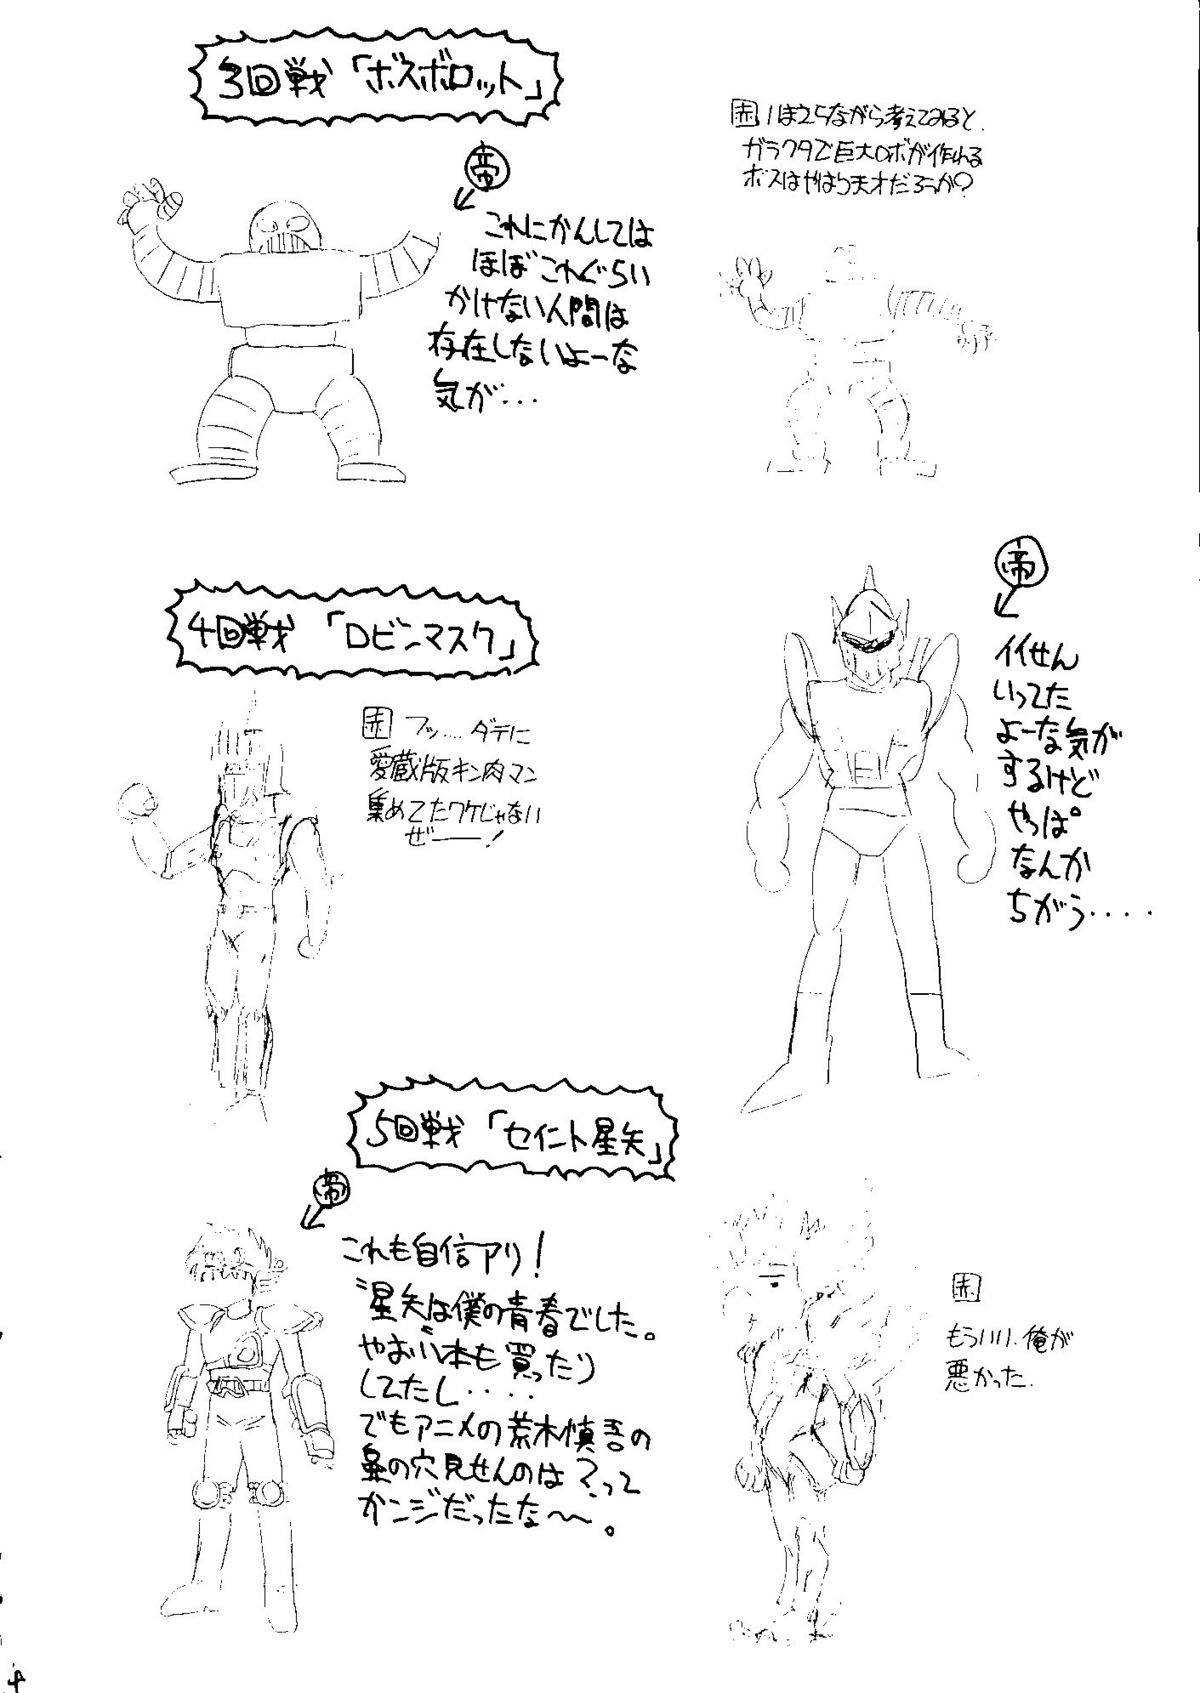 3回戦「ボスボロット」
帝
これにかんしては
ほぼこれぐらい
かけない人間は
存在しないよーな
気が・・・
赤 ほほえみながら考えてみると、
ガラクタで巨大ロボが作れる
ボスはやはり天才だろーか?
4回戦「ロビンマスク」
赤 フッ….ダテに
愛蔵版キン肉マン
集めてたワケじゃない
ぜーー!
帝
イイせん
いってた
よーな気が
するけど
やっぱ
なんか
ちがう・・・・
5回戦「セイント星矢」
帝
これも自信アリ!
"星矢"は僕の青春でした。
やおい本も買ったり
してたし・・・・
でもアニメの荒木慎吾の
鼻の穴見せんのは?って
カンジだったな〜〜。
赤
もういい、俺が
悪かった.
4